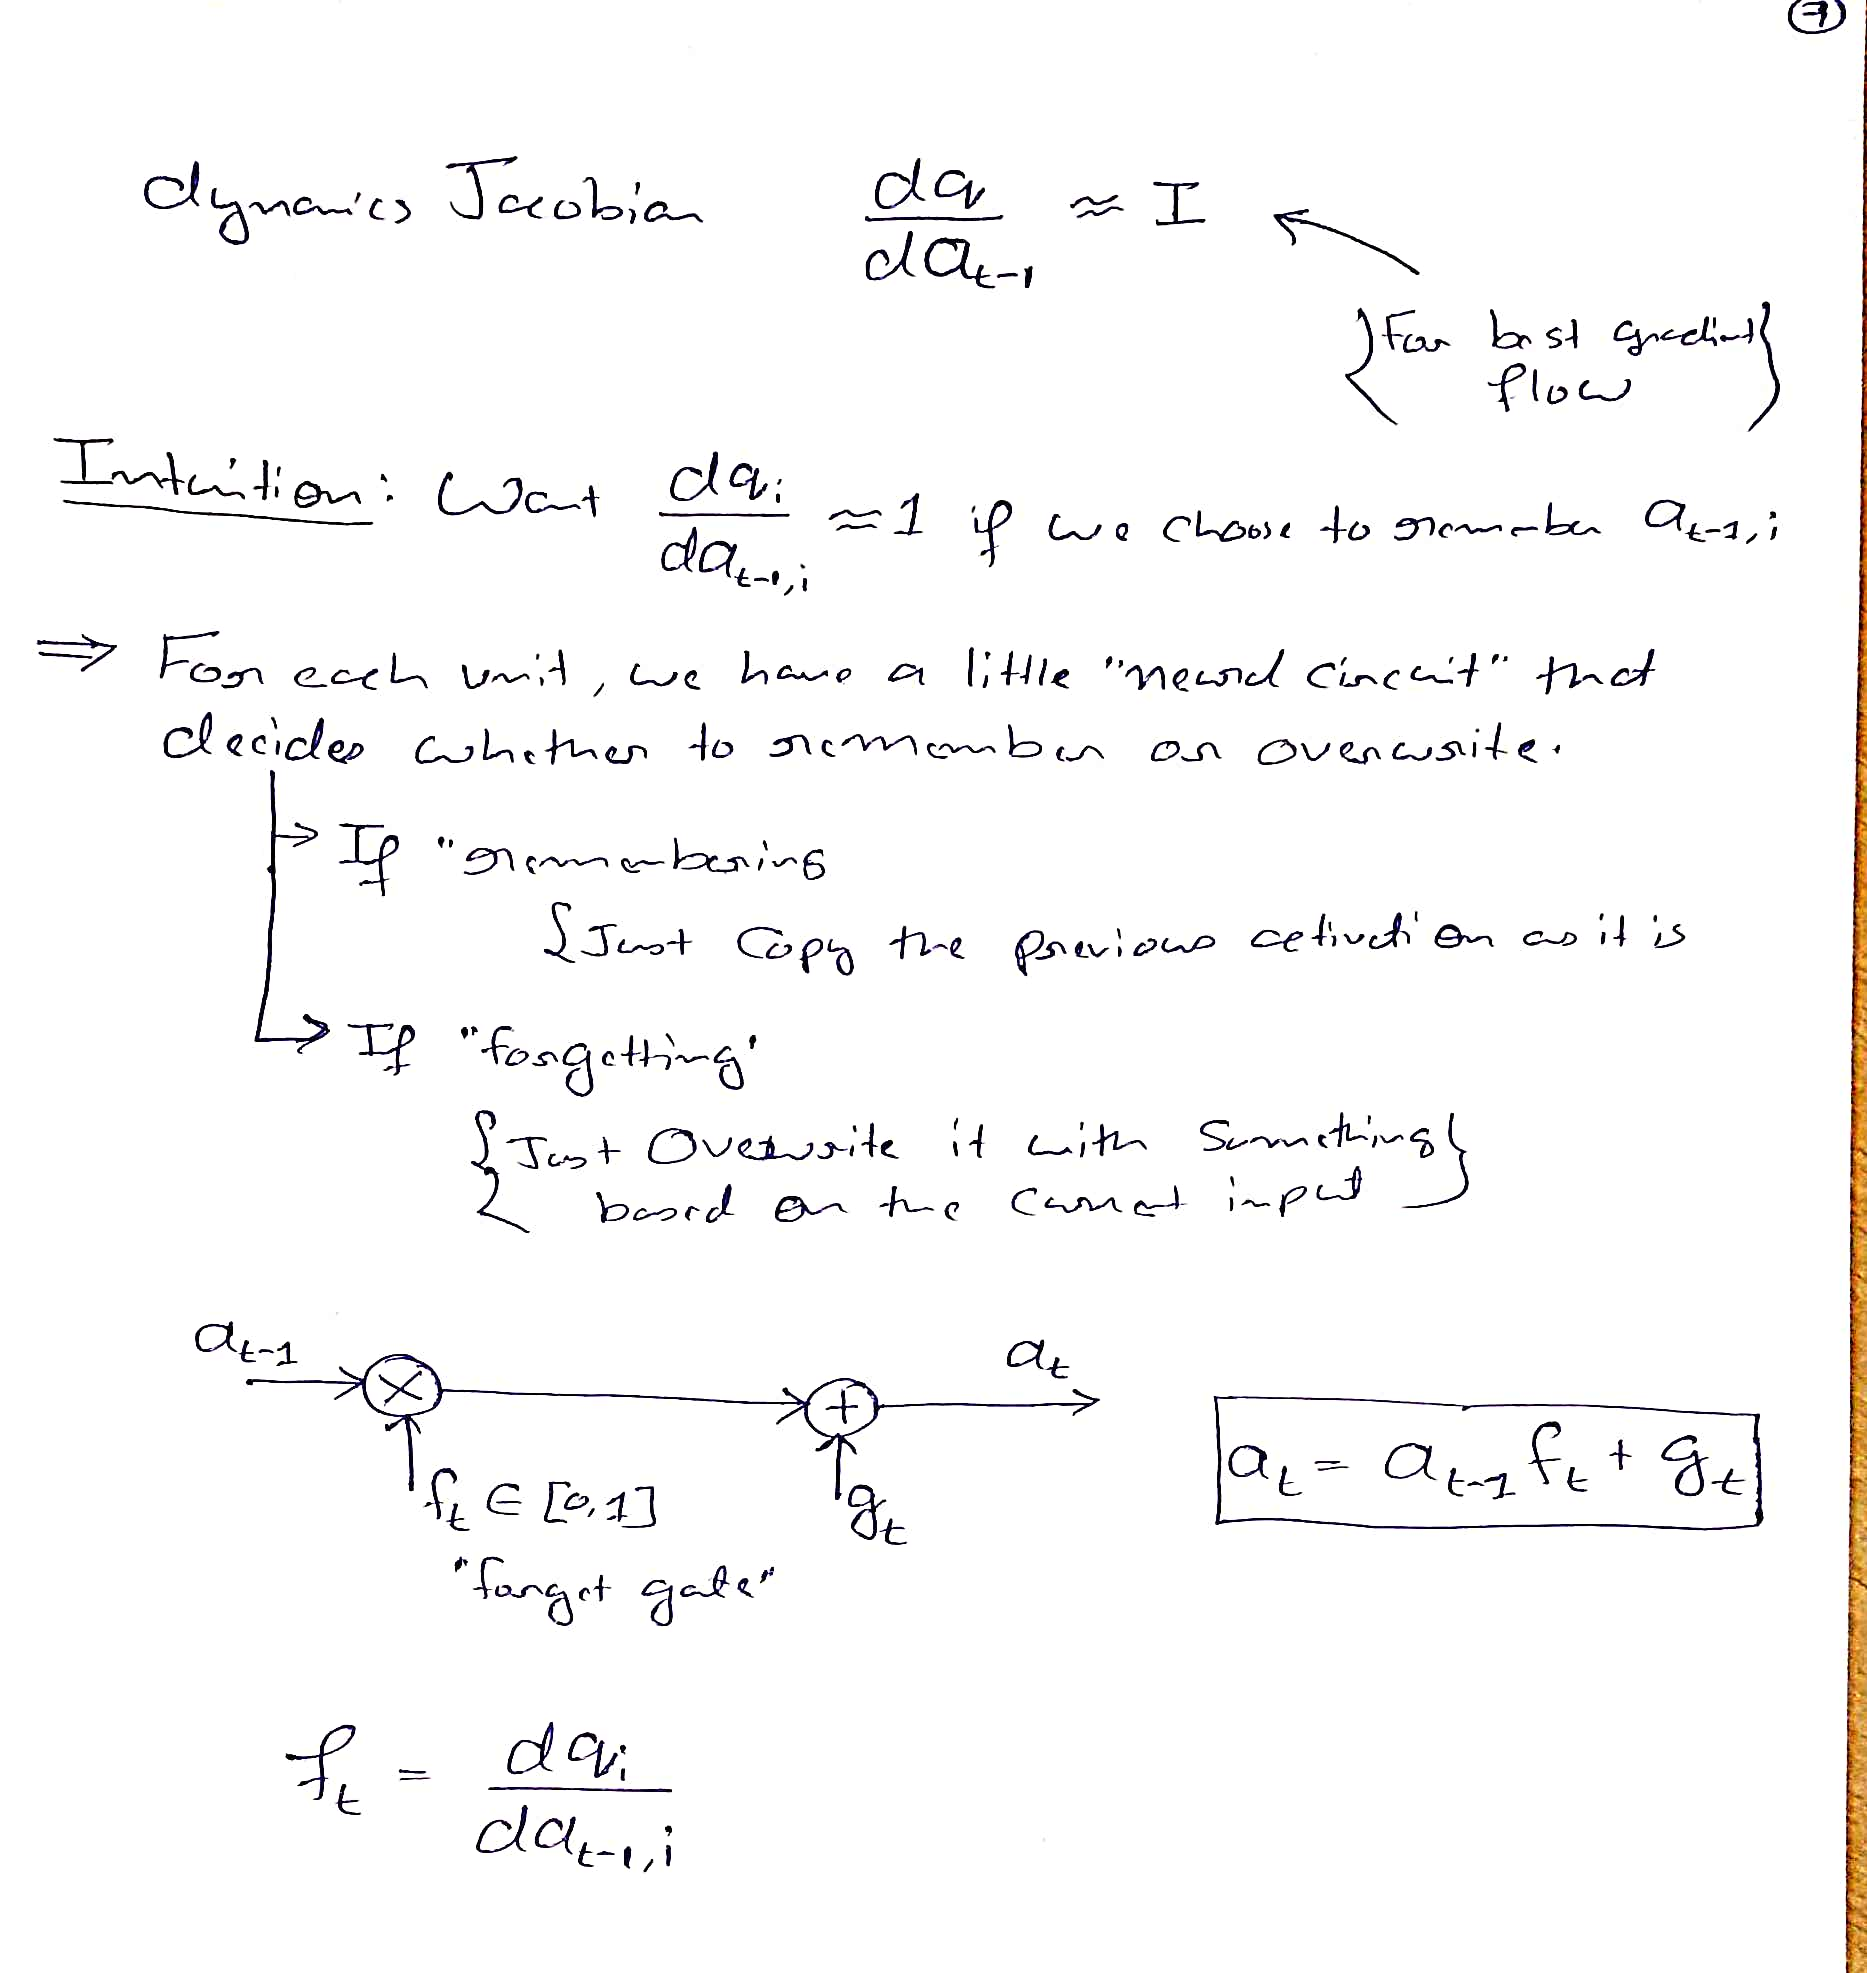 7
dynamics Jacobian da/da_{t-1} ≈ I
{For best gradient}
flow
Intuition: Want da_i/da_{t-1,i} ≈ 1 if we choose to remember a_{t-1,i}
⇒ For each unit, we have a little "neural circuit" that
decides whether to remember or overwrite.
→ If "remembering
{Just Copy the previous activation as it is
→ If "forgetting'
{Just Overwrite it with Something}
based on the current input
a_{t-1} × + a_t
a_t = a_{t-1} f_t + g_t
f_t ∈ [0,1] g_t
"forget gate"
f_t = da_i/da_{t-1,i}